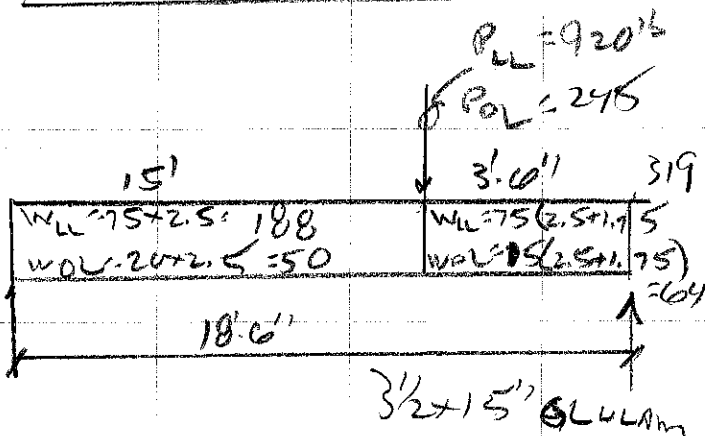 P_LL = 920 lb
P_DL = 245
15' 3'-6" 319
W_LL = 75×2.5 = 188 W_LL = 75(2.5+1.75
W_DL = 20×2.5 = 50 W_DL = 15(2.5+1.75)
=64
18'-6"
3½×15" GLULAM